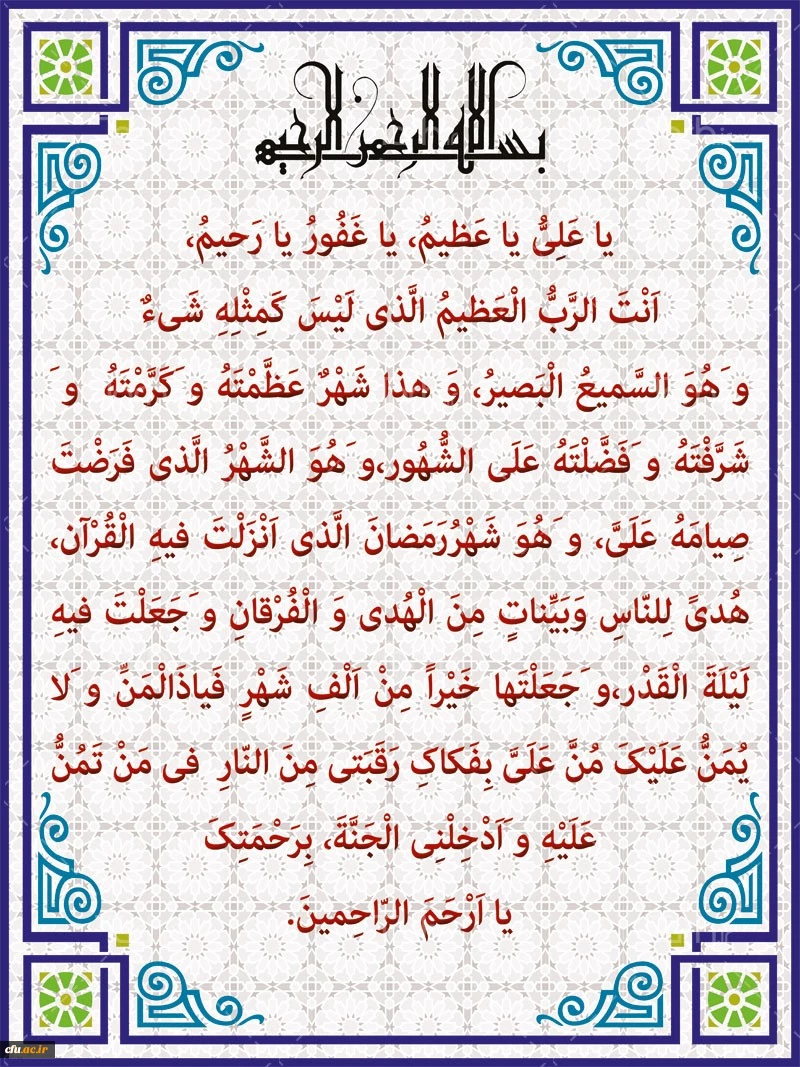 بسم الله الرحمن الرحیم
یا عَلِیُّ یا عَظیمُ، یا غَفُورُ یا رَحیمُ،
اَنْتَ الرَّبُّ الْعَظیمُ الَّذی لَیْسَ کَمِثْلِهِ شَیءٌ
وَهُوَ السَّمیعُ الْبَصیرُ، وَ هذا شَهْرٌ عَظَّمْتَهُ وَکَرَّمْتَهُ وَ
شَرَّفْتَهُ وَفَضَّلْتَهُ عَلَی الشُّهُور،وَهُوَ الشَّهْرُ الَّذی فَرَضْتَ
صِیامَهُ عَلَیَّ، وَهُوَ شَهْرُرَمَضانَ الَّذی اَنْزَلْتَ فیهِ الْقُرْآن،
هُدیً لِلنّاسِ وَبَیِّناتٍ مِنَ الْهُدی وَ الْفُرْقانِ وَجَعَلْتَ فیهِ
لَیْلَةَ الْقَدْر،وَجَعَلْتَها خَیْراً مِنْ اَلْفِ شَهْرٍ فَیاذَالْمَنِّ وَلا
یُمَنُّ عَلَیْکَ مُنَّ عَلَیَّ بِفَکاکِ رَقَبَتی مِنَ النّارِ فی مَنْ تَمُنُّ
عَلَیْهِ وَاَدْخِلْنِی الْجَنَّةَ، بِرَحْمَتِکَ
یا اَرْحَمَ الرّاحِمینَ.
cfu.ac.ir